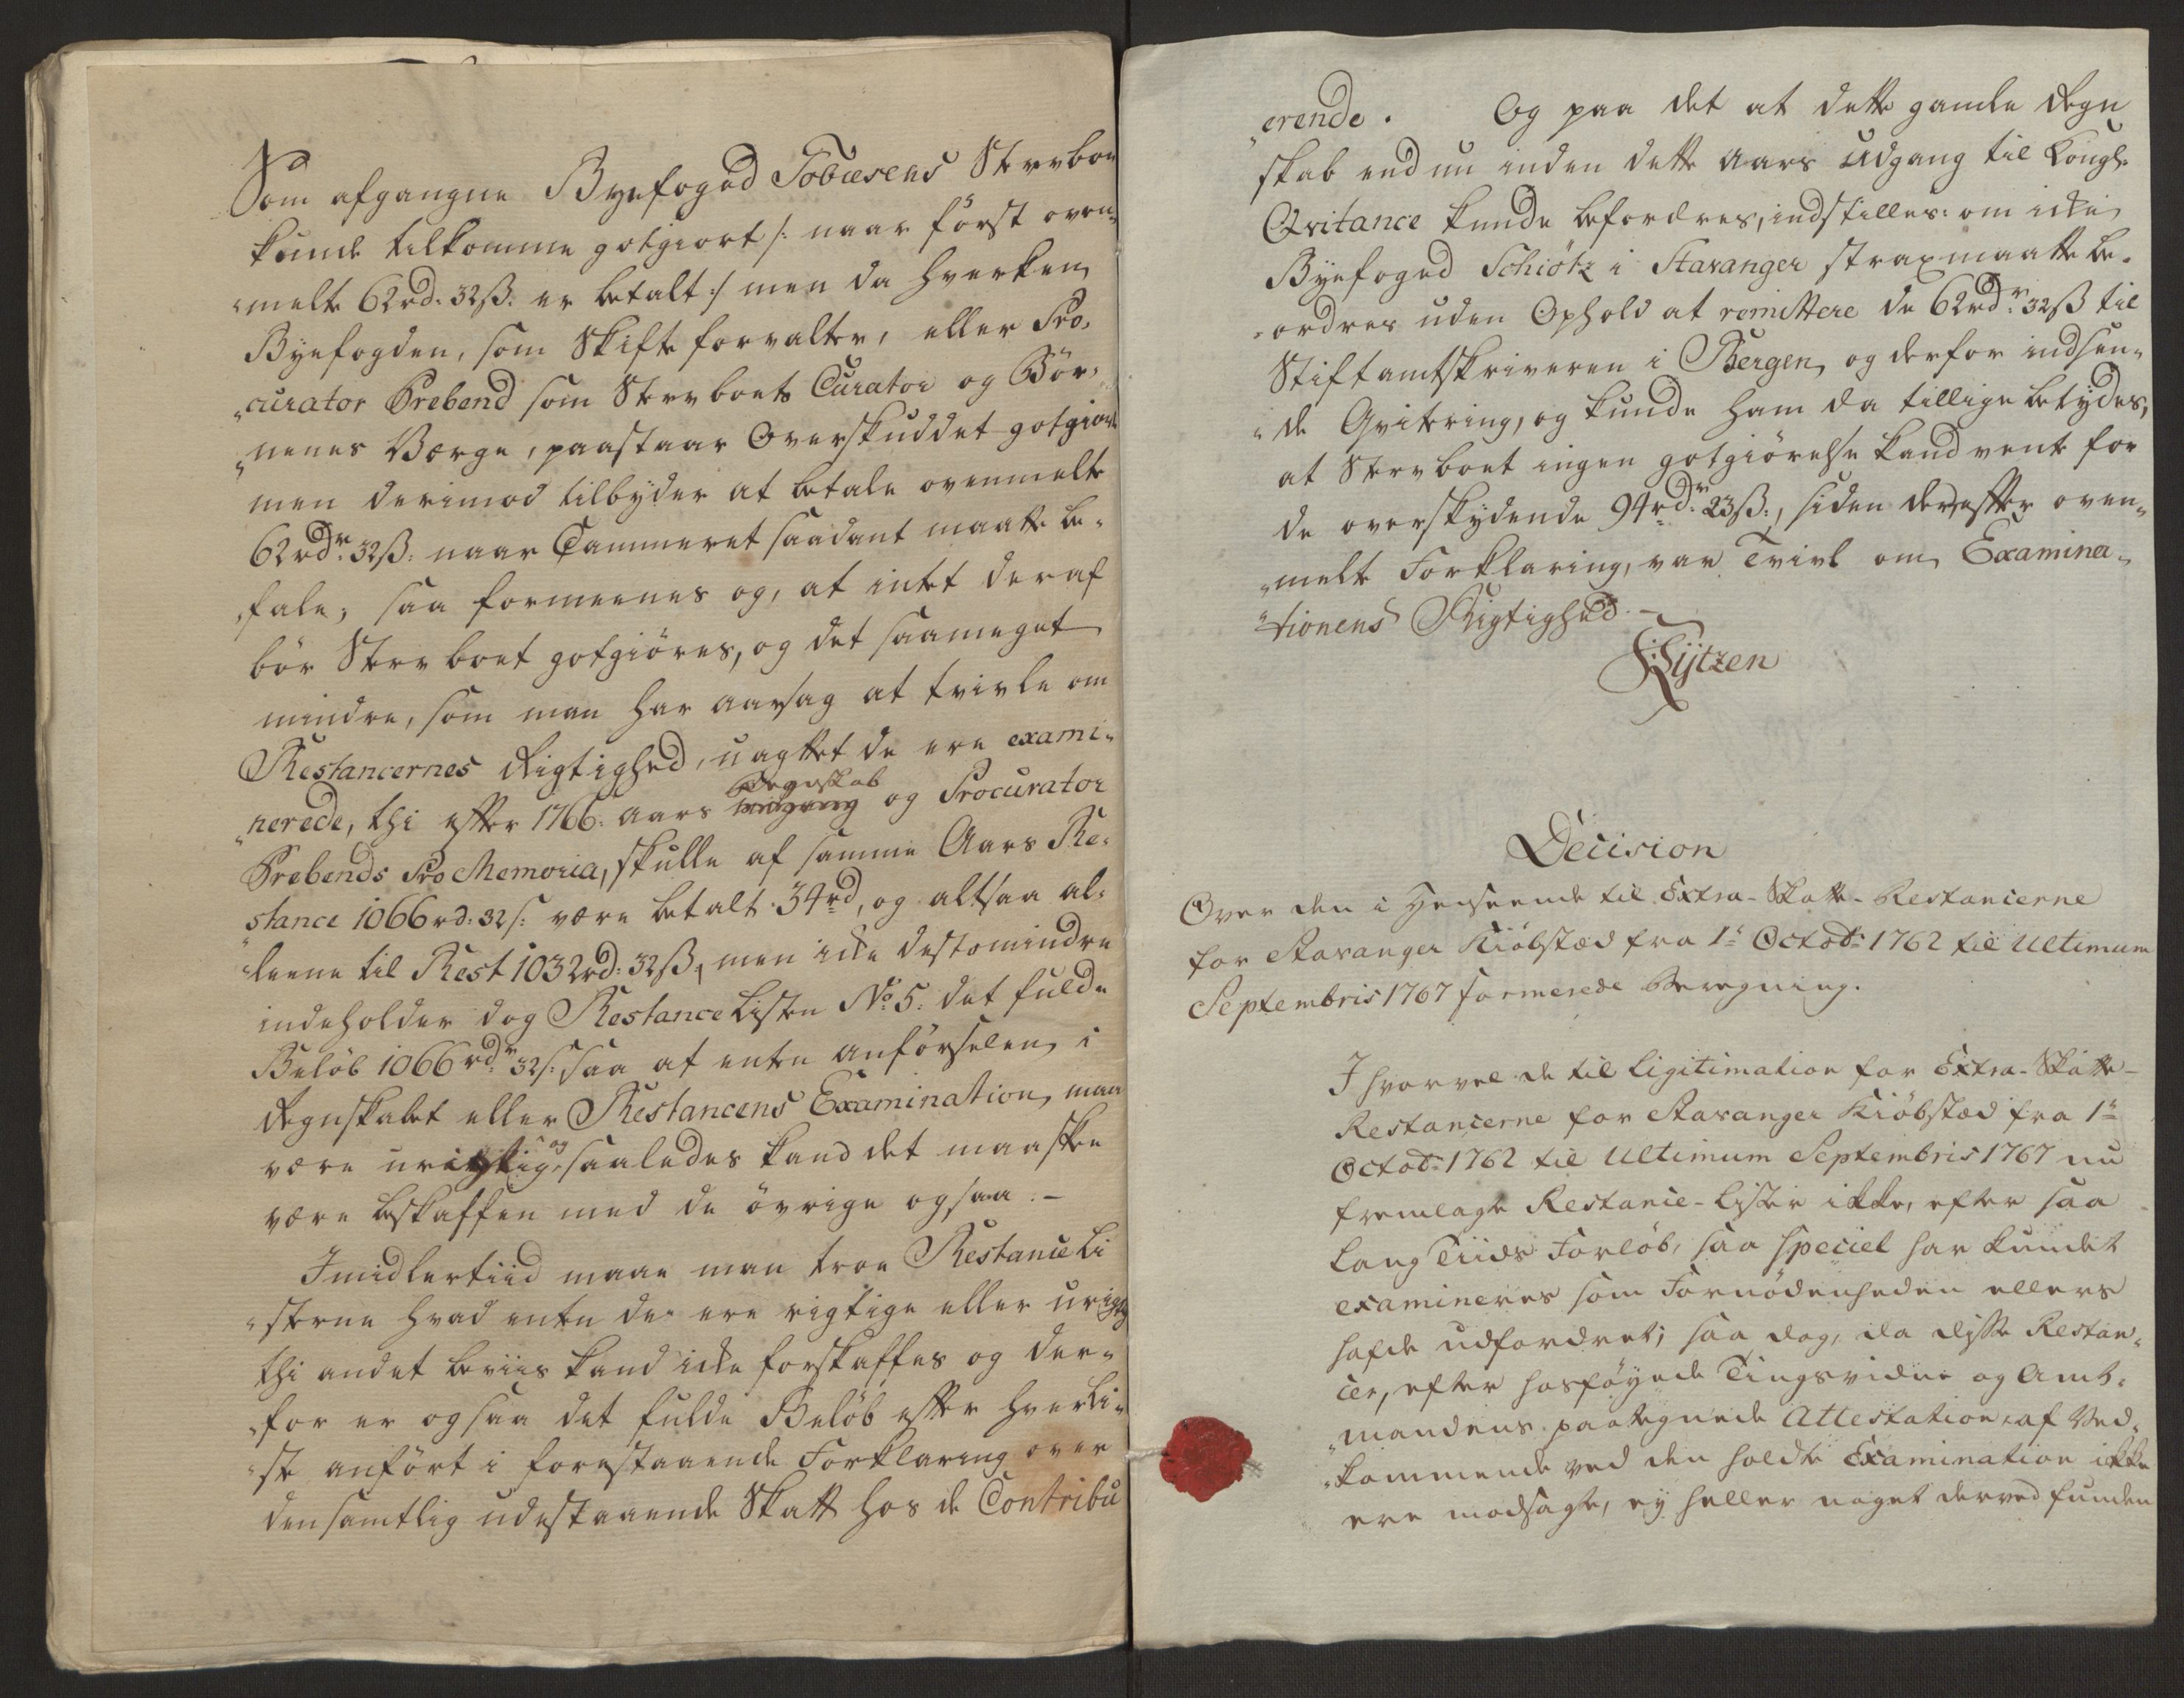 Som afgangne Byefoged Tobiesens Stervboe
kunde tilkomme gotgiort /: naar först oven¬
melte 62rd: 32ß: er betalt :/ men da hverken
Byefogden, som Skifteforvalter, eller Pro¬
curator Prebend som Stervboets Curator og Bör¬
nenes Værge, paastaar Overskuddet gotgiort
men derimod tilbyder at betale ovenmelte
62rdr: 32ß: naar Cammeret saadant maatte be¬
fale; saa formeenes og, at intet deraf
bör Stervboet gotgiöres, og det saameget
mindre, som man har aarsag at tvivle om
Restancernes Rigtighed, uagtet de ere exami¬
nerede, thi efter 1766: aars Regnskab og Procurator
Prebends Pro Memoria, skulle af samme Aars Re¬
stance 1066rd: 32s: være betalt 34rd, og altsaa al¬
leene til Rest 1032rd: 32ß, men icke destomindre
indeholder dog Restance Listen No: 5: det fulde
Belöb 1066rdr: 32s: saa at enten anförselen i
Regnskabet eller Restancens Examination, maa
være urigtig, og saaledes kand det maaskee
være beskaffen med de övrige ogsaa. –
Imidlertiid maae man troe Restance Li
sterne hvad enten de ere rigtige eller urigtig
thi andet beviis kand icke forskaffes og der¬
for er ogsaa det fulde Belöb efter hver Li¬
ste anfört i forestaaende Forklaring over
den samtlig udestaaende Skatt hos de Contribu
erende. Og paa det at dette gamle Regn
skab end nu inden dette aars udgang til Kongl:
Qvitance kunde befordres, indstilles: om icke
Byefoged Schiötz i Stavanger strax maatte be¬
ordres uden Ophold at remittere de 62rdr: 32ß til
Stiftamtskriveren i Bergen, og derfor indsen¬
de Qvitering, og kunde ham da tillige betydes,
at Stervboet ingen gotgiörelse kand vente for
de overskydende 94rdr: 23ß:, siden der efter oven¬
melte Forklaring, var Tvivl om Examina¬
tionens Rigtighed. –
Klytzen
Decision
Over den i Henseende til Extra-Skatte-Restancerne
for Stavanger Kiöbstæd fra 1te Octobr: 1762 til Ultimum
Septembris 1767 formerede Beregning.
I hvorvel de til Ligitimation for Extra-Skatte-
Restancerne for Stavanger Kiöbstæd fra 1te
Octobr: 1762 til Ultimum Septembris 1767 nu
fremlagte Restance-Lister ikke, efter saa
lang Tiids Forlöb, saa speciel har kundet
examineres som Fornödenheden ellers
hafde udfordret; saa dog, da disse Restan¬
cer, efter hosföyede Tingsvidne og Amt¬
mandens paategnede Attestation, af Ved¬
kommende ved den holdte Examination ikke
ere modsagte, ey heller noget derved funden